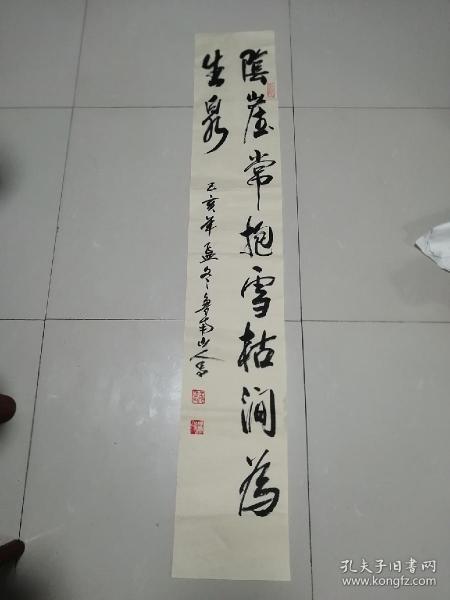 陰崖常抱雪枯澗為
生泉
己亥年孟冬魯南山人書
孔夫子旧书网
www.kongfz.com